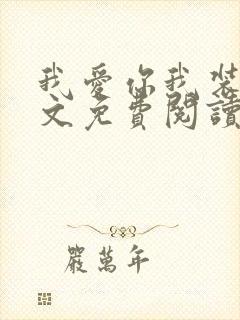 我愛你我裝
文免費閱讀
嚴萬年